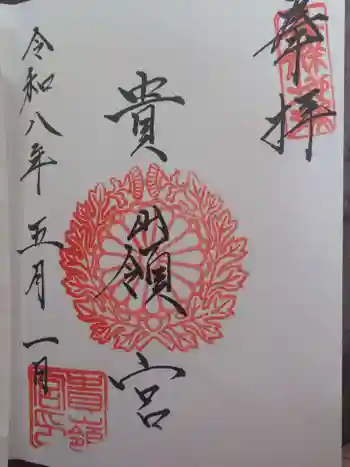 奉拝
貴嶺宮
令和八年五月一日